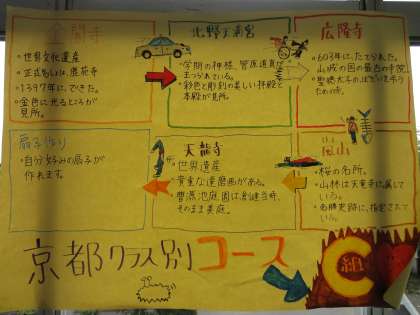 金閣寺
・世界文化遺産
・正式名しょうは、鹿苑寺
・1397年に、できた。
・金色に光るところが
見所。
北野天満宮
・学問の神様、菅原道真が
まつられている。
・彩色と彫刻の美しい拝殿と
本殿が見所。
広隆寺
・603年にたてられた。
山城の国の最古の寺院
・聖徳太子の
ために
扇子作り
・自分好みの扇子が
作れます。
天龍寺
・世界遺産
・貴重な達磨画がある。
・曹源池庭園は創建当時、
そのまま美庭。
嵐山
・桜の名所。
・山林は天竜寺に属して
いる。
・名勝史跡に、指定されてい
京都クラス別コース
C組